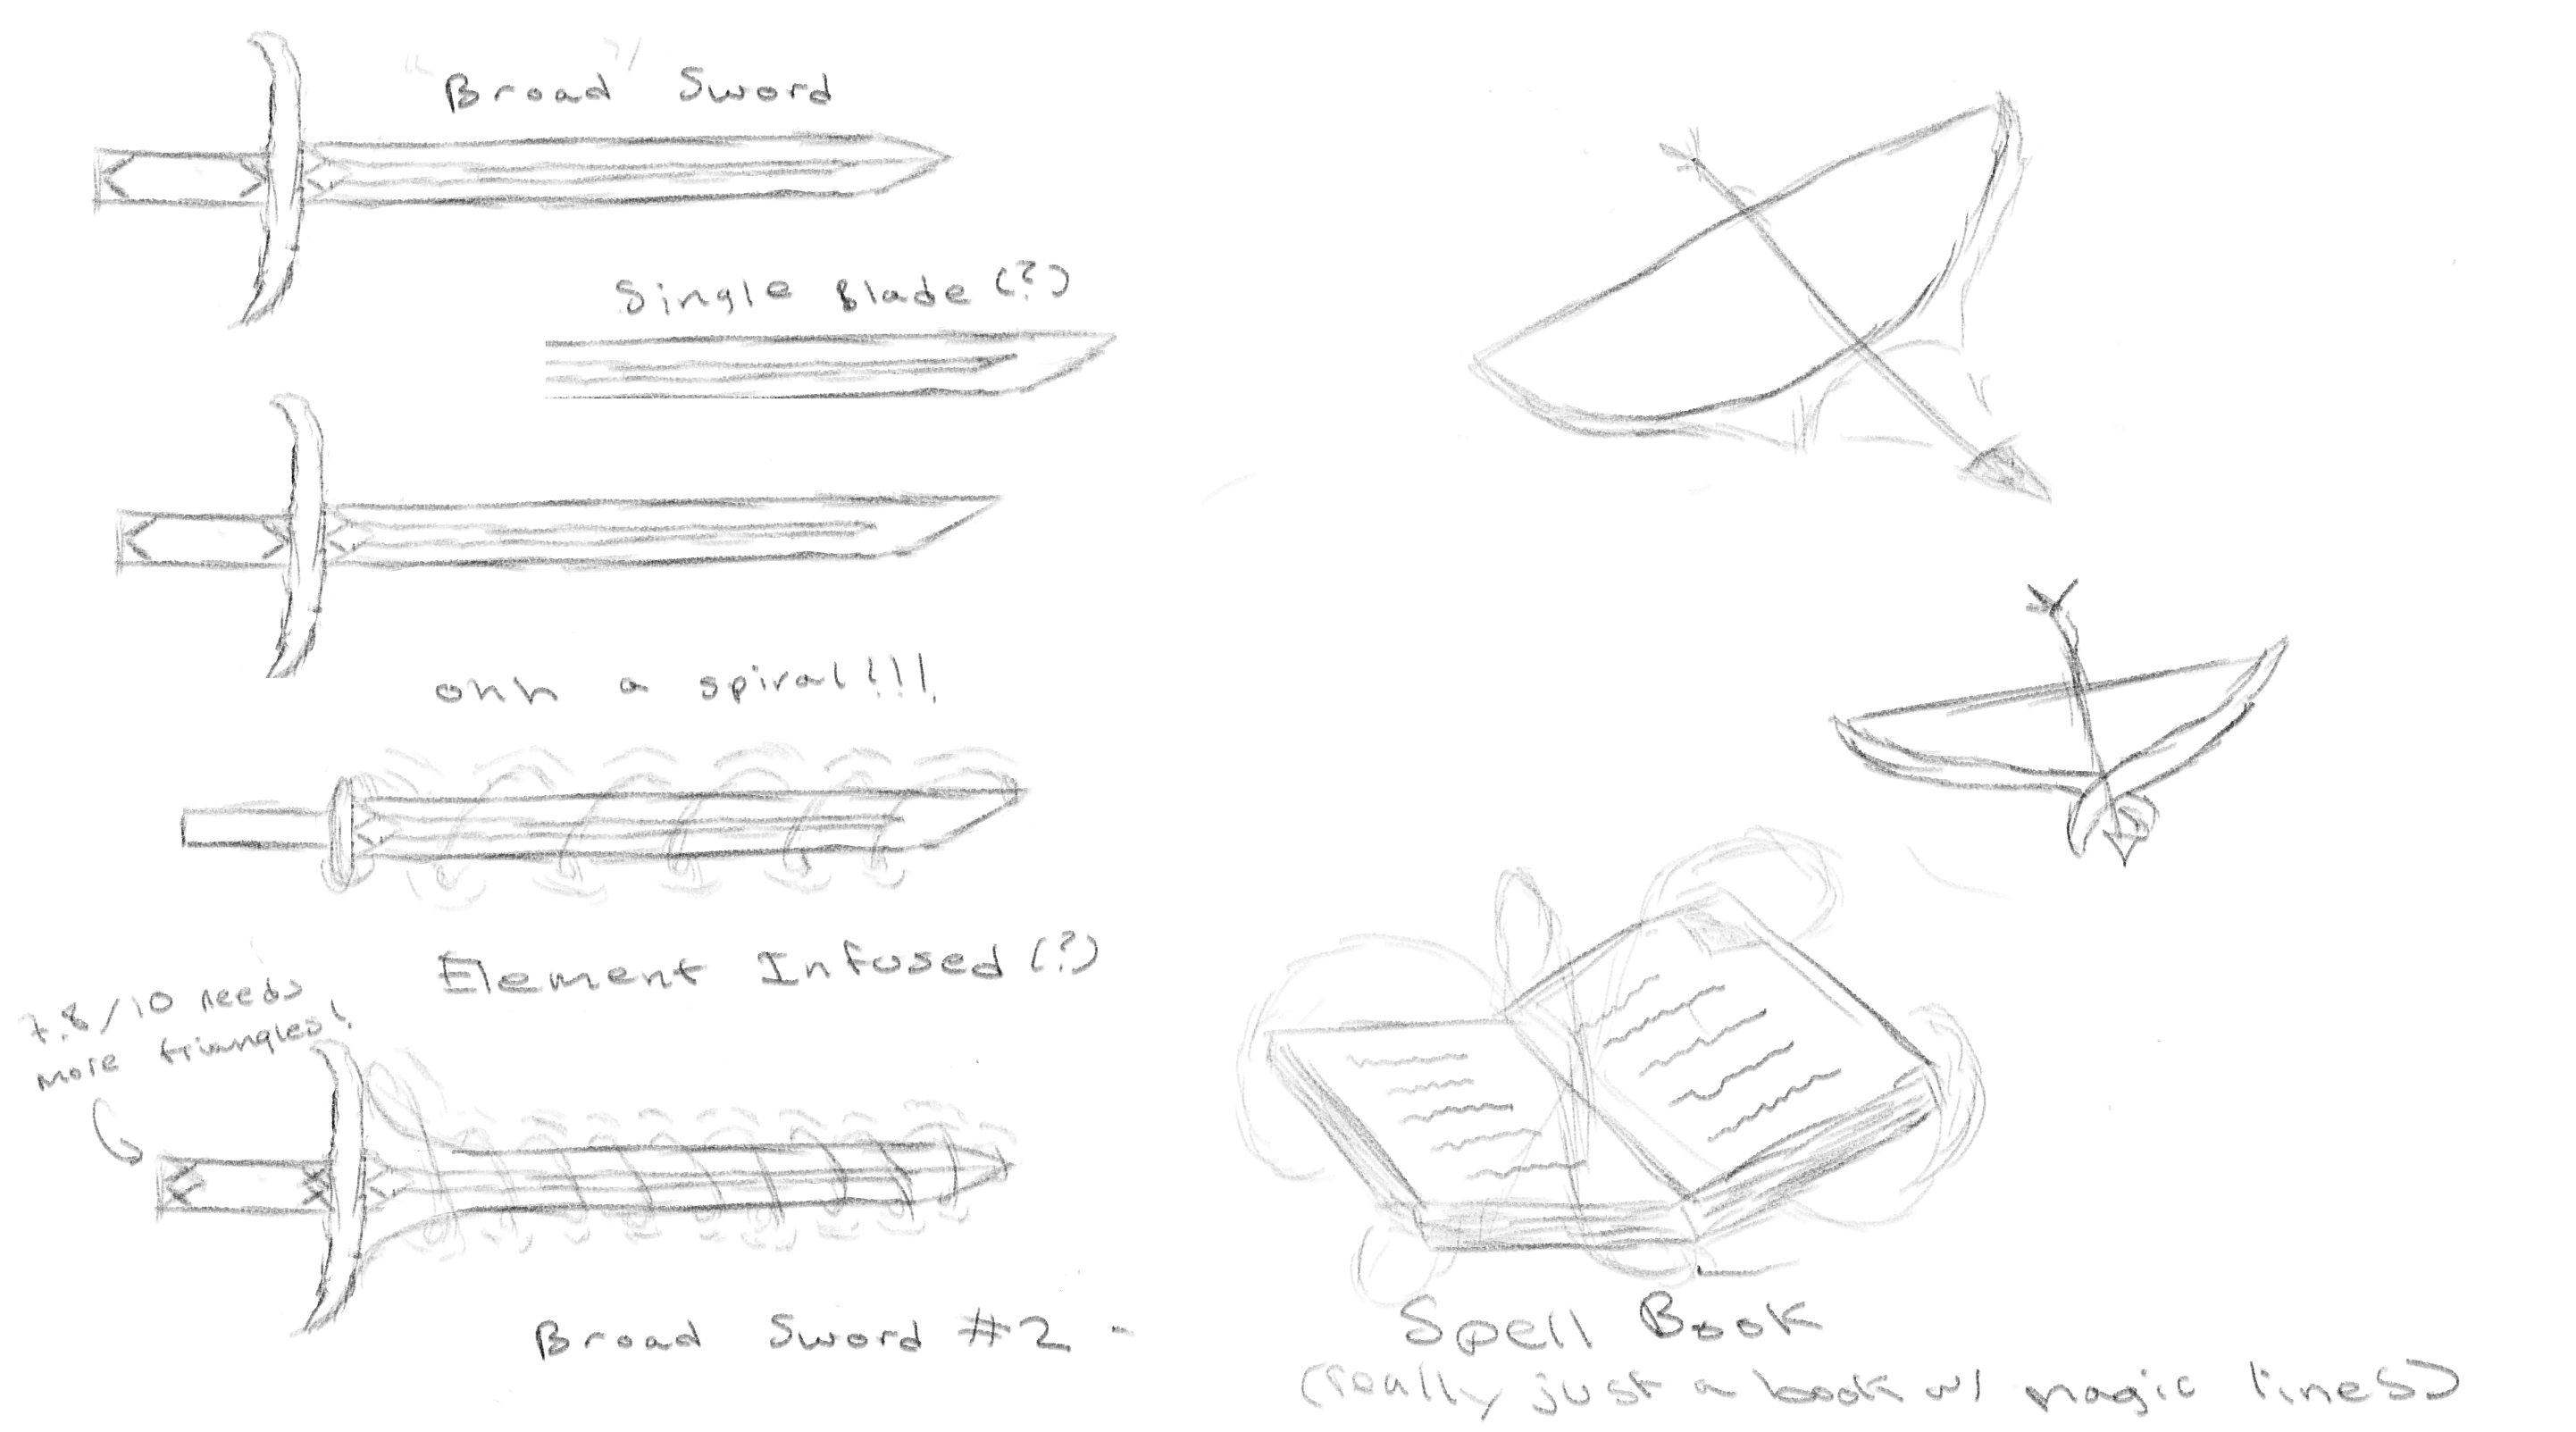 "Broad"?/ Sword
Single Blade (?)
ohh a spiral!!!
Element Infused (?)
7.8/10 needs
more triangles!
Broad Sword #2
Spell Book
(really just a book w/ magic lines)